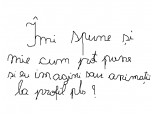 Îmi spune și
mie cum pot pune
și eu imagini sau animați
la profil pls ?